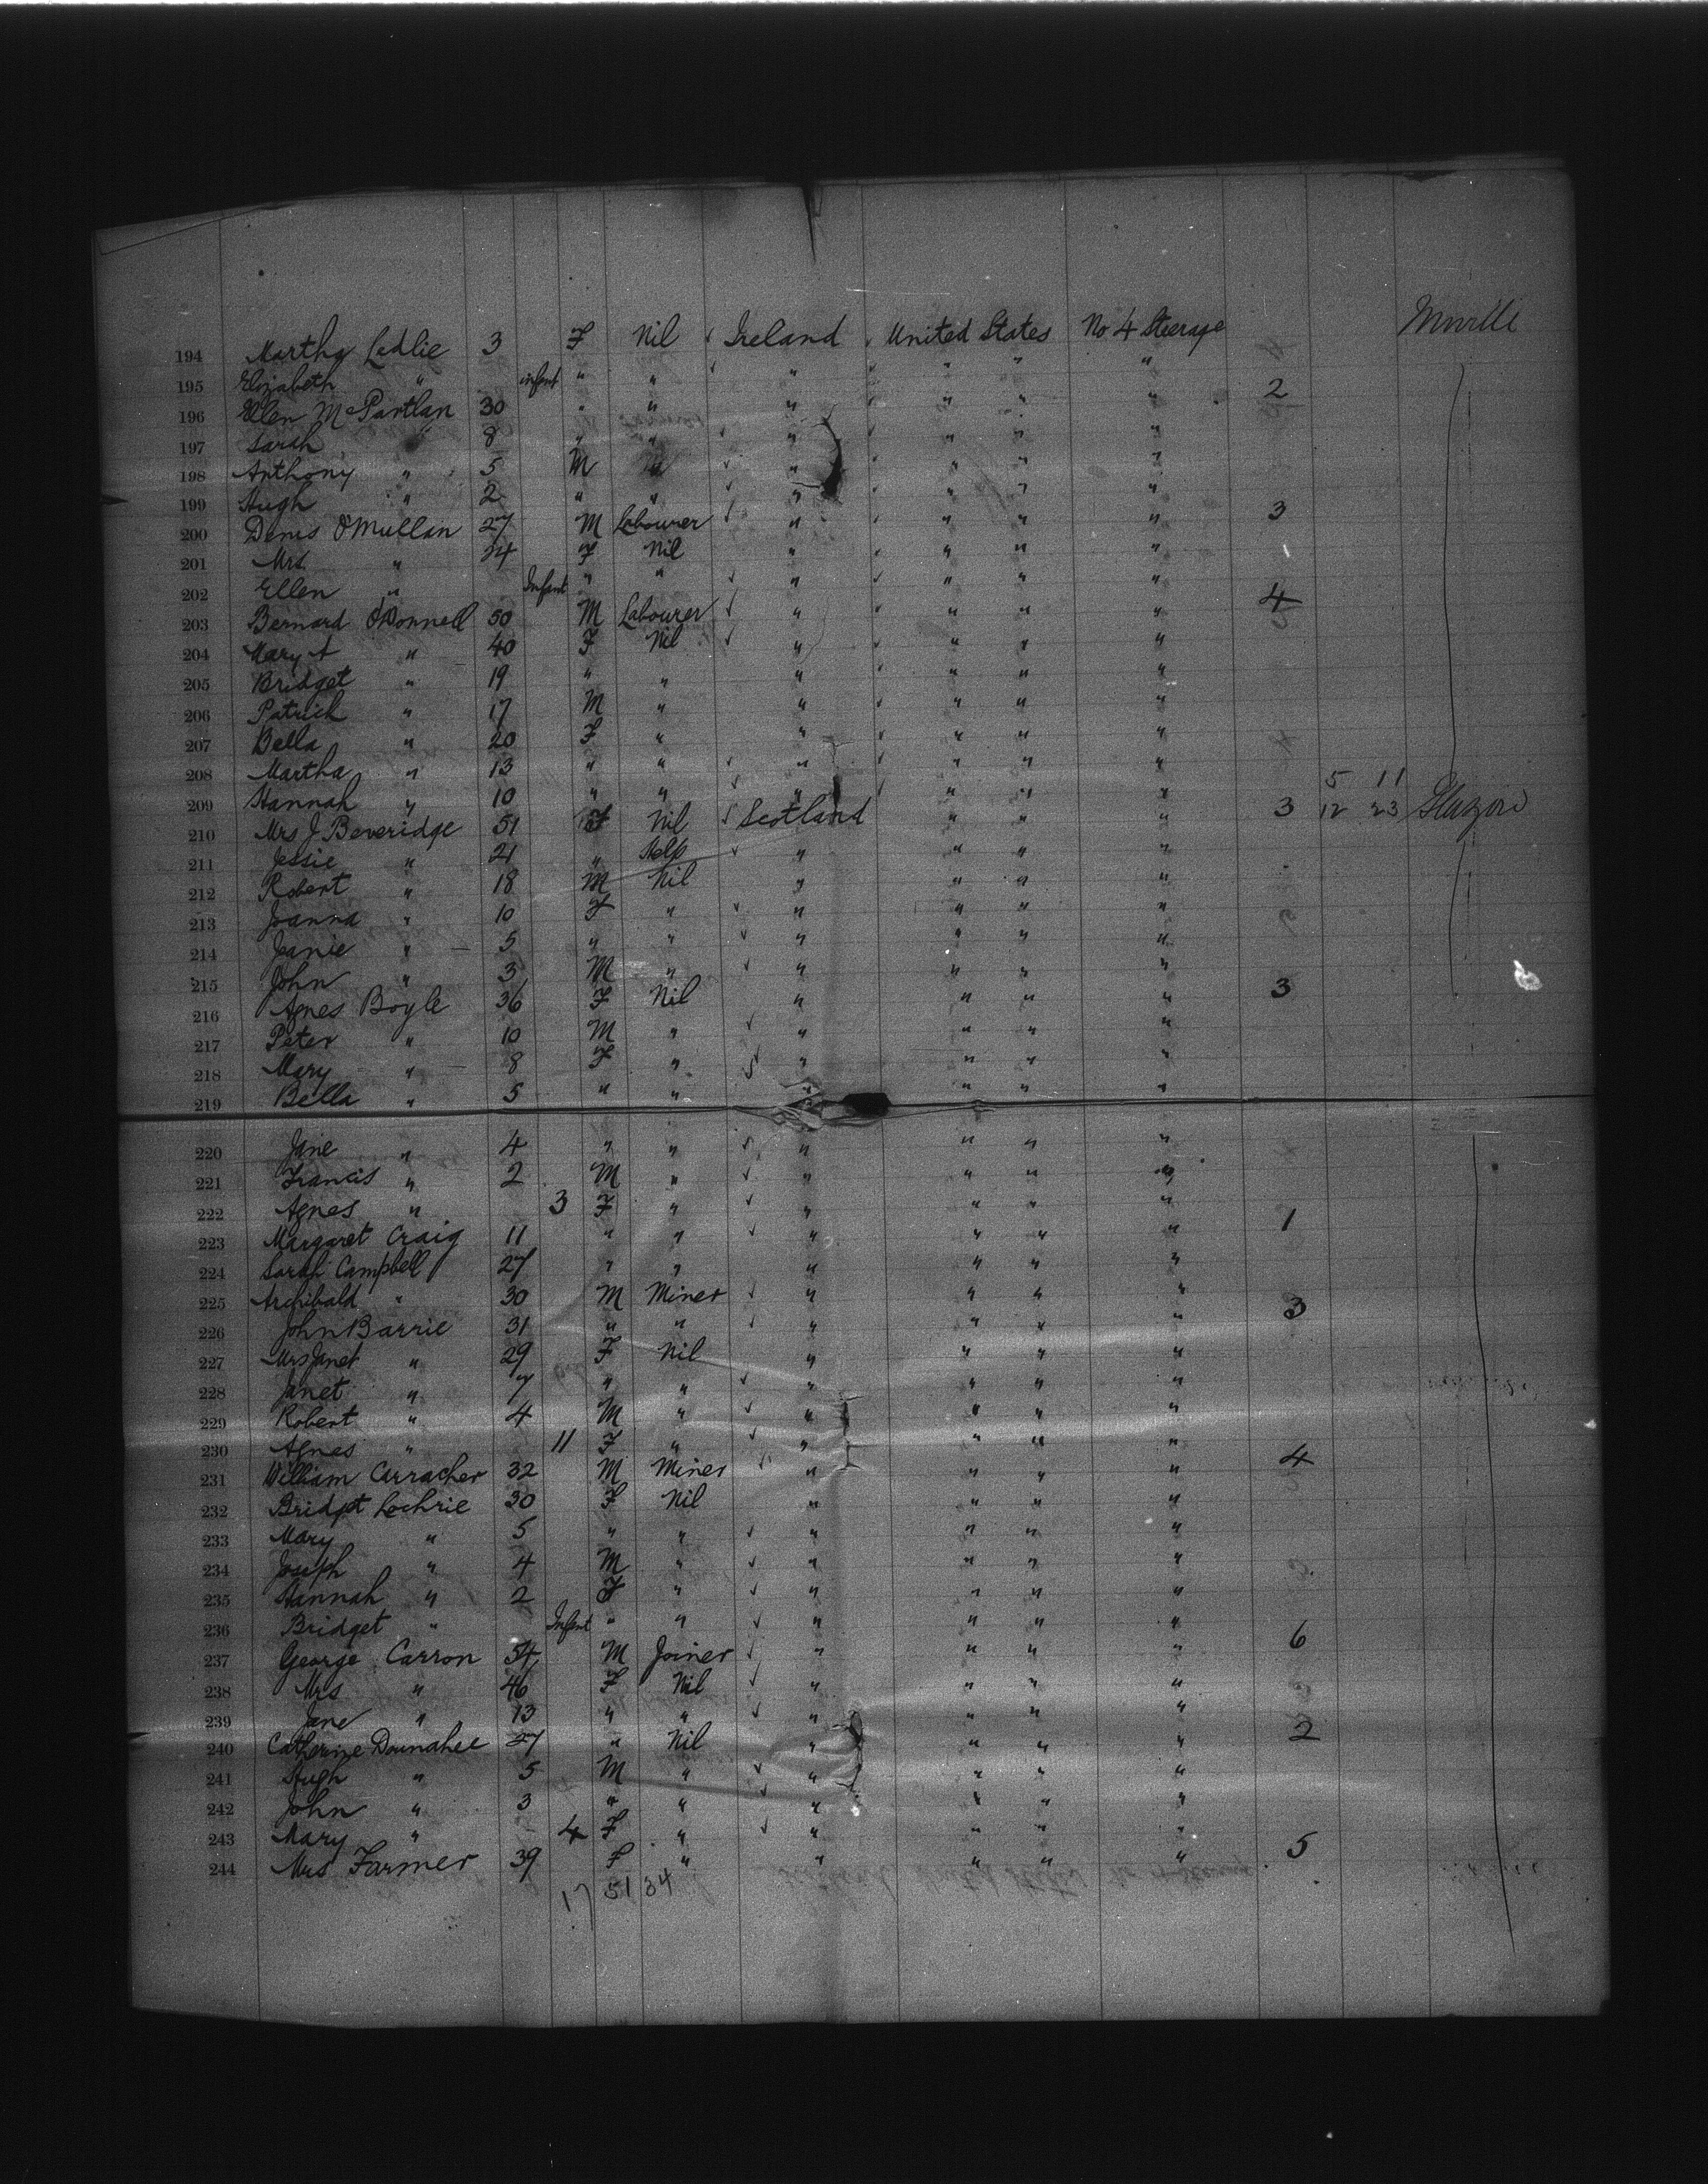 194 Martha Ledlie 3 F Nil ✓ Ireland ✓ United States No 4 Steerage
195 Elizabeth " infant " " ✓ " ✓ " " " 2
196 Ellen McPartlan 30 " " " ✓ " " "
197 Sarah " 8 " " ✓ " ✓ " " "
198 Anthony " 5 M " ✓ " ✓ " " "
199 Hugh " 2 " " ✓ " ✓ " " " 3
200 Denis O'Mullan 27 M Labourer ✓ " ✓ " " "
201 Mrs " 24 F Nil " ✓ " " "
202 Ellen " Infant " " ✓ " ✓ " " " 4
203 Bernard O'Donnell 50 M Labourer ✓ " ✓ " " "
204 Mary A " 40 F Nil ✓ " ✓ " " "
205 Bridget " 19 " " " ✓ " " "
206 Patrick " 17 M " " ✓ " " "
207 Bella " 20 F " " ✓ " " "
208 Martha " 13 " " ✓ " ✓ " " " 5 11
209 Hannah " 10 " " ✓ " ✓ " " " 3 12 23 Glasgow
210 Mrs J Beveridge 51 F Nil ✓ Scotland " " "
211 Jessie " 21 " Help ✓ " " " "
212 Robert " 18 M Nil " " " "
213 Joanna " 10 F " ✓ " " " "
214 Jeanie " 5 " " ✓ " " " "
215 John " 3 M " ✓ " " " " 3
216 Agnes Boyle 36 F Nil " " " "
217 Peter " 10 M " ✓ " " " "
218 Mary " 8 F " ✓ " " " "
219 Bella " 5 " " " " " "
220 Jane " 4 " " ✓ " " " "
221 Francis " 2 M " ✓ " " " "
222 Agnes " 3 F " ✓ " " " " 1
223 Margaret Craig 11 " " ✓ " " " "
224 Sarah Campbell 27 " " " " " "
225 Archibald " 30 M Miner ✓ " " " " 3
226 John Barrie 31 " " ✓ " " " "
227 Mrs Janet " 29 F Nil " " " "
228 Janet " 7 " " ✓ " " " "
229 Robert " 4 M " ✓ " " " "
230 Agnes " 11 F " ✓ " " " " 4
231 William Curracher 32 M Miner ✓ " " " "
232 Bridget Lochrie 30 F Nil " " " "
233 Mary " 5 " " ✓ " " " "
234 Joseph " 4 M " ✓ " " " "
235 Hannah " 2 F " ✓ " " " "
236 Bridget " Infant " " ✓ " " " " 6
237 George Carron 54 M Joiner ✓ " " " "
238 Mrs " 46 F Nil ✓ " " " "
239 Jane " 13 " " ✓ " " " " 2
240 Catherine Dounahee 27 " Nil " " " "
241 Hugh " 5 M " ✓ " " " "
242 John " 3 " " ✓ " " " "
243 Mary " 4 F " ✓ " " " " 5
244 Mrs Farmer 39 F " " " " "
17 51 34